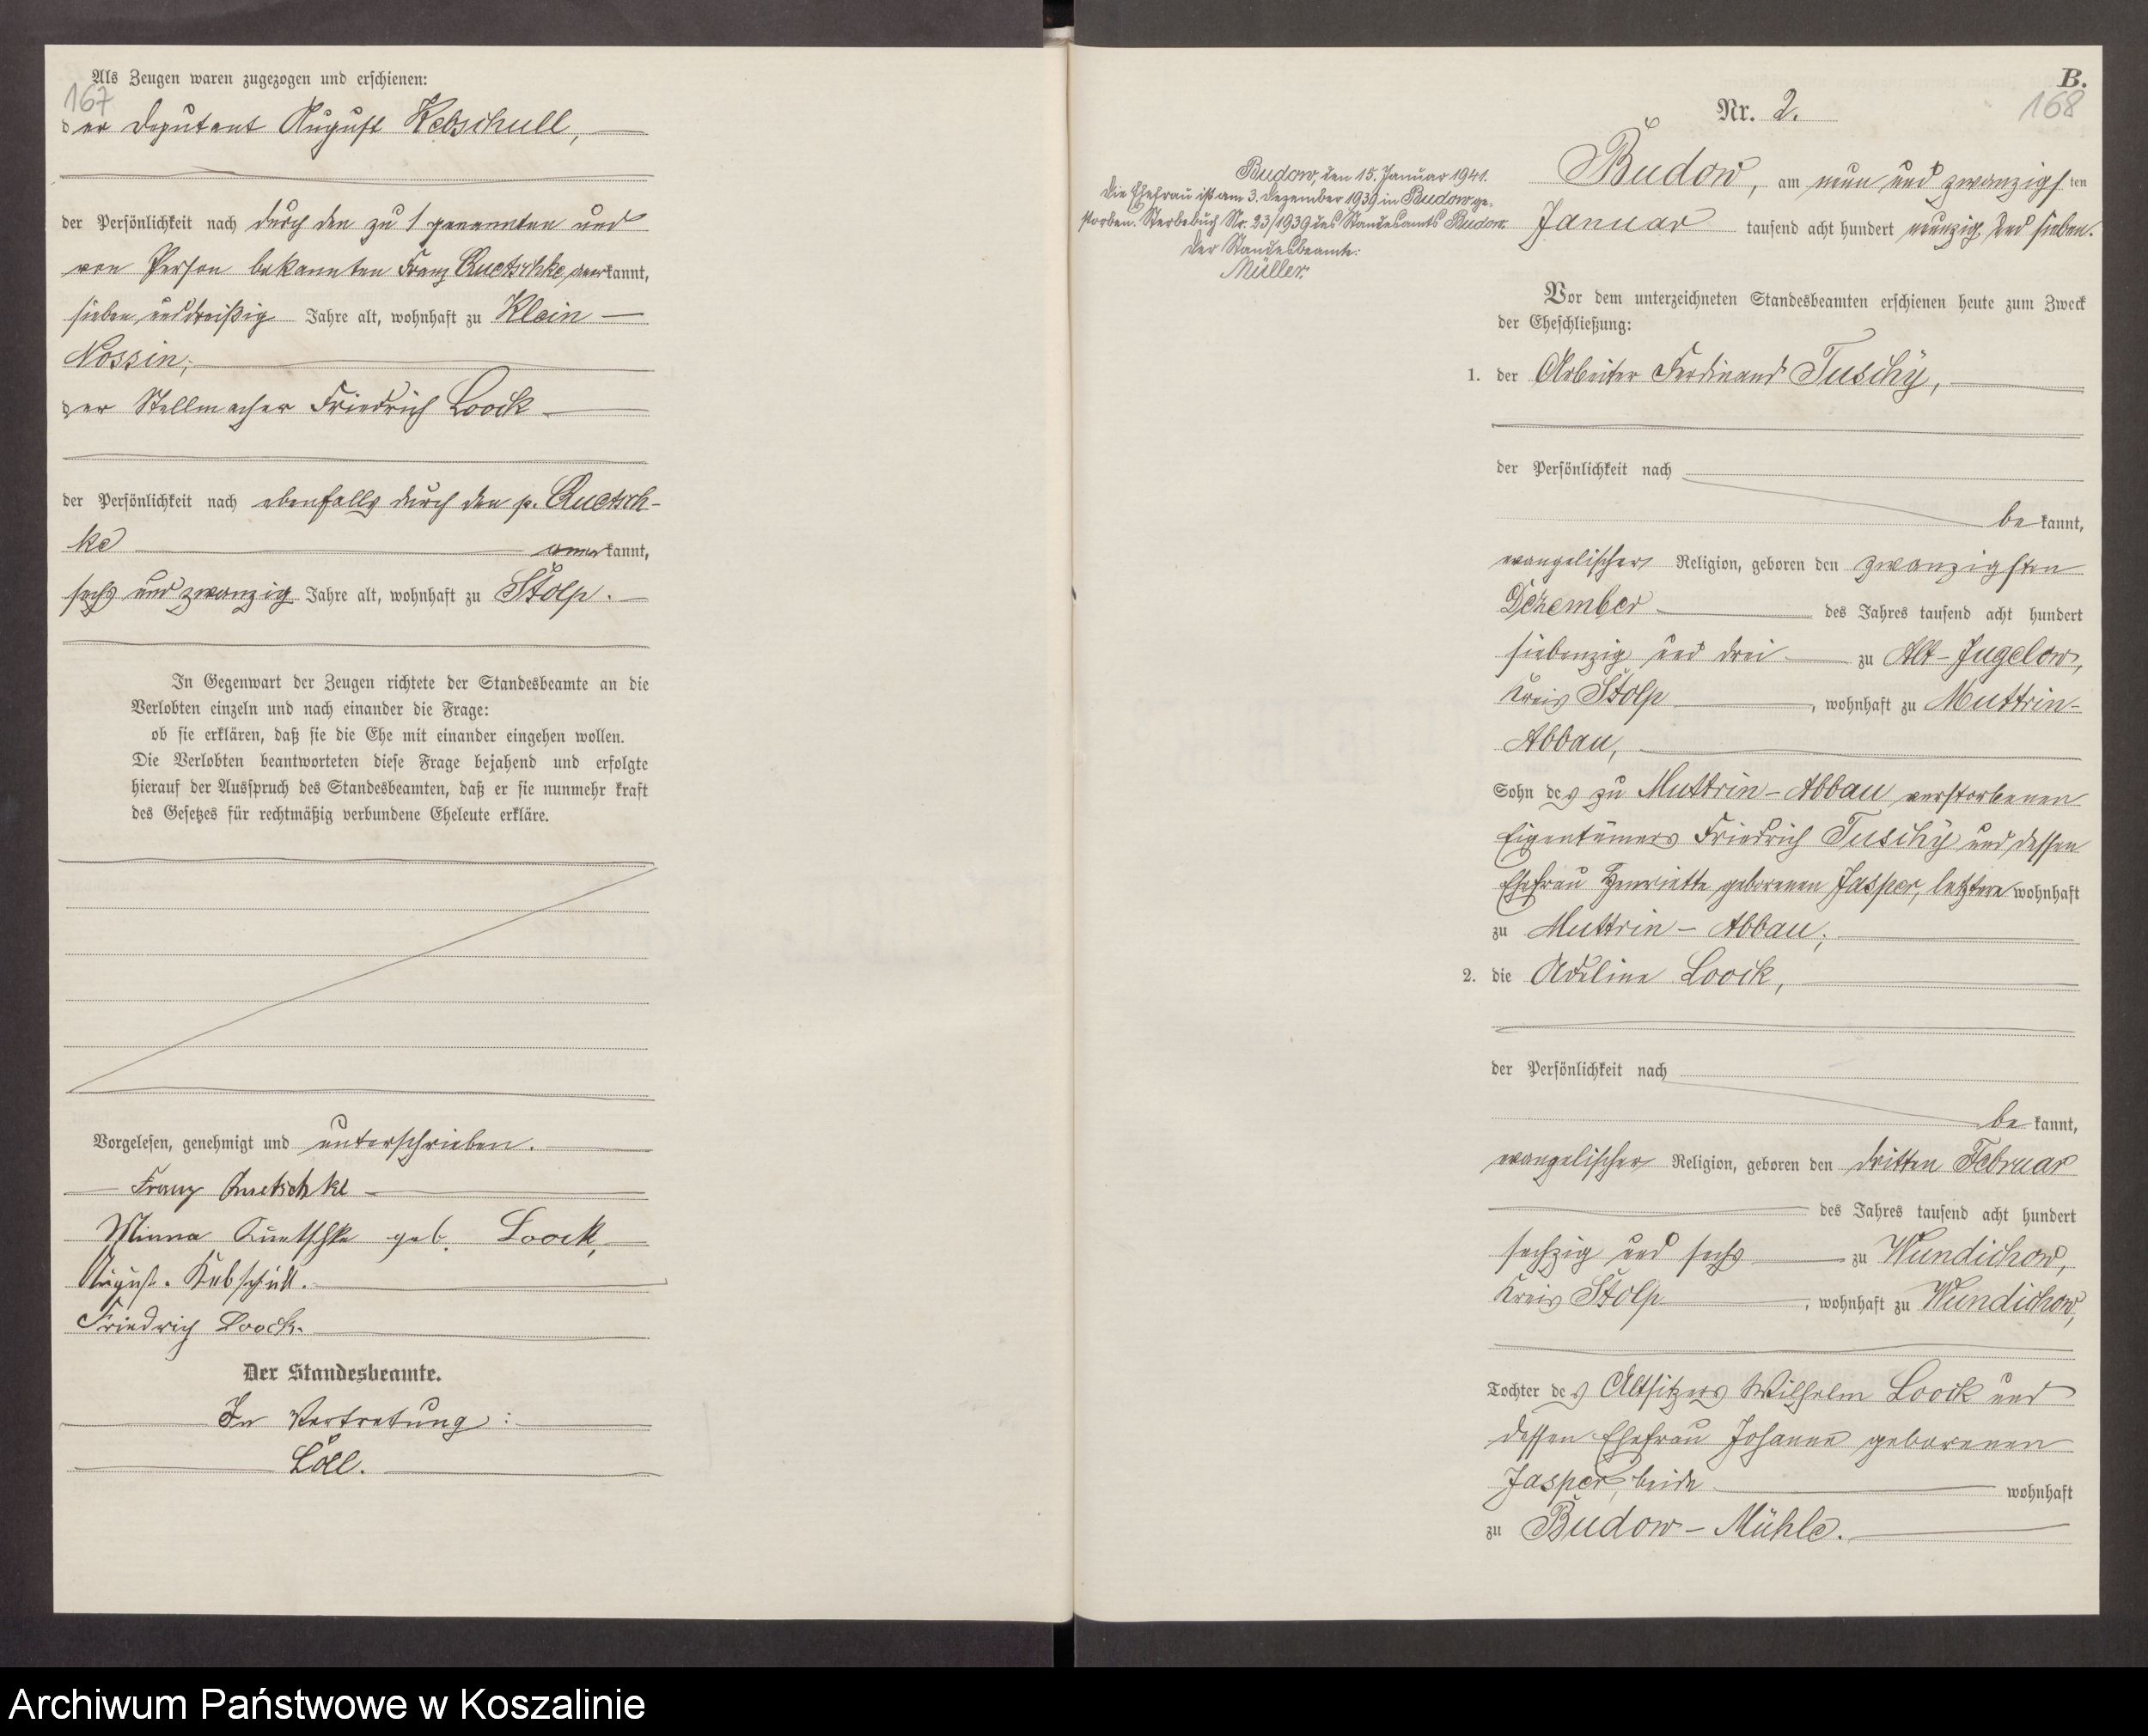 Als Zeugen waren zugezogen und erschienen:
167
der Deputant August Kebschull,
der Persönlichkeit nach durch den zu 1 genannten und
von Person bekannten Franz Quetschke anerkannt,
sieben und dreißig Jahre alt, wohnhaft zu Klein
Nossin;
der Stellmacher Friedrich Loock
der Persönlichkeit nach ebenfalls durch den p. Quetsch-
ke anerkannt,
sechs und zwanzig Jahre alt, wohnhaft zu Stolp.
In Gegenwart der Zeugen richtete der Standesbeamte an die
Verlobten einzeln und nach einander die Frage:
ob sie erklären, daß sie die Ehe mit einander eingehen wollen.
Die Verlobten beantworteten diese Frage bejahend und erfolgte
hierauf der Ausspruch des Standesbeamten, daß er sie nunmehr kraft
des Gesetzes für rechtmäßig verbundene Eheleute erkläre.
Vorgelesen, genehmigt und unterschrieben.
Franz Quetschke
Minna Quetschke geb. Loock,
August Kebschull.
Friedrich Loock.
Der Standesbeamte.
In Vertretung:
Löll.
B.
168
Nr. 2.
Budow, am neun und zwanzigsten
Januar tausend acht hundert neunzig und sieben.
Budow, den 15. Januar 1941.
Die Ehefrau ist am 3. Dezember 1939 in Budow ge-
storben. Sterbebuch Nr. 23/1939 des Standesamts Budow.
Der Standesbeamte:
Müller.
Vor dem unterzeichneten Standesbeamten erschienen heute zum Zweck
der Eheschließung:
1. der Arbeiter Ferdinand Tuschÿ,
der Persönlichkeit nach
bekannt,
evangelischer Religion, geboren den zwanzigsten
Dezember des Jahres tausend acht hundert
siebenzig und drei zu Alt-Jugelow,
Kreis Stolp, wohnhaft zu Muttrin-
Abbau,
Sohn des zu Muttrin-Abbau verstorbenen
Eigentümers Friedrich Tuschÿ und dessen
Ehefrau Henriette geborenen Jasper, letztere wohnhaft
zu Muttrin-Abbau;
2. die Adeline Loock,
der Persönlichkeit nach
bekannt,
evangelischer Religion, geboren den dritten Februar
des Jahres tausend acht hundert
sechzig und sechs zu Wundichow,
Kreis Stolp, wohnhaft zu Wundichow,
Tochter des Altsitzers Wilhelm Loock und
dessen Ehefrau Johanne geborenen
Jasper, beide wohnhaft
zu Budow-Mühle.
Archiwum Państwowe w Koszalinie